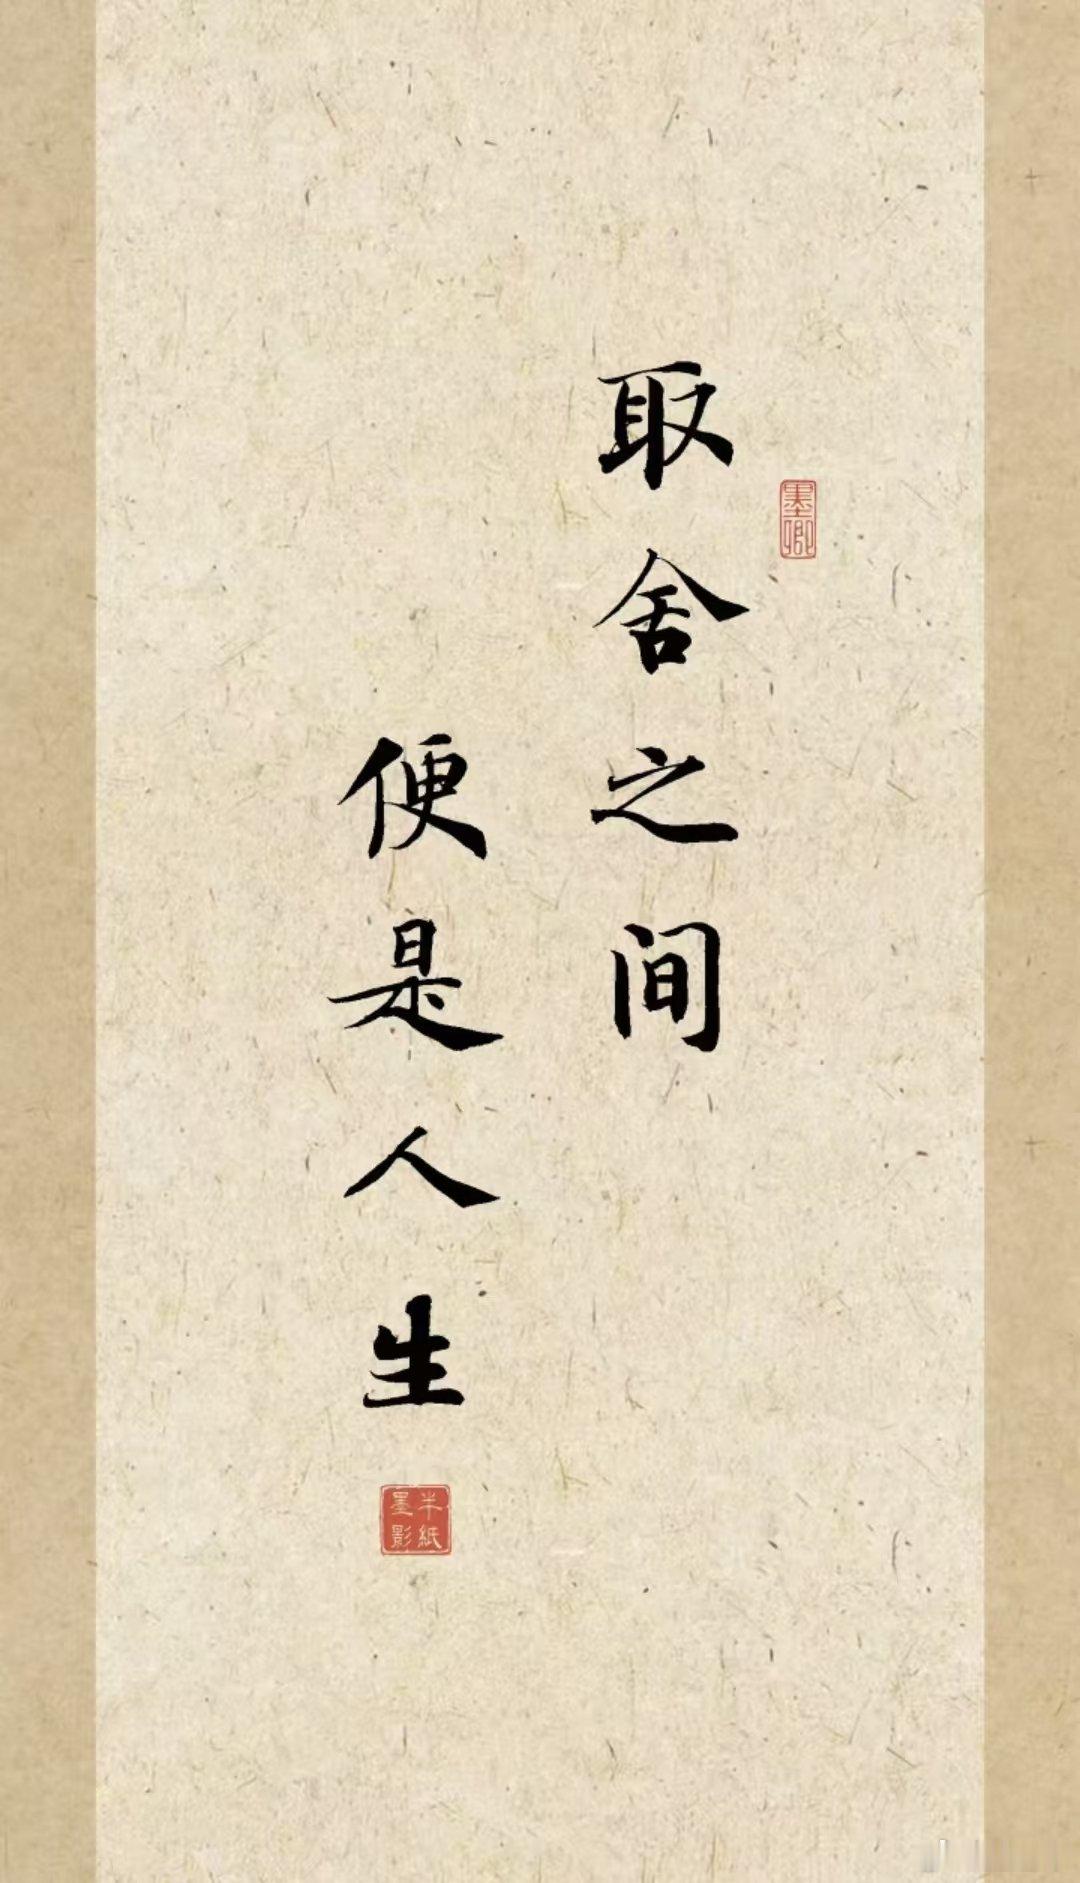 取舍之间
便是人生
墨卿
半紙墨影